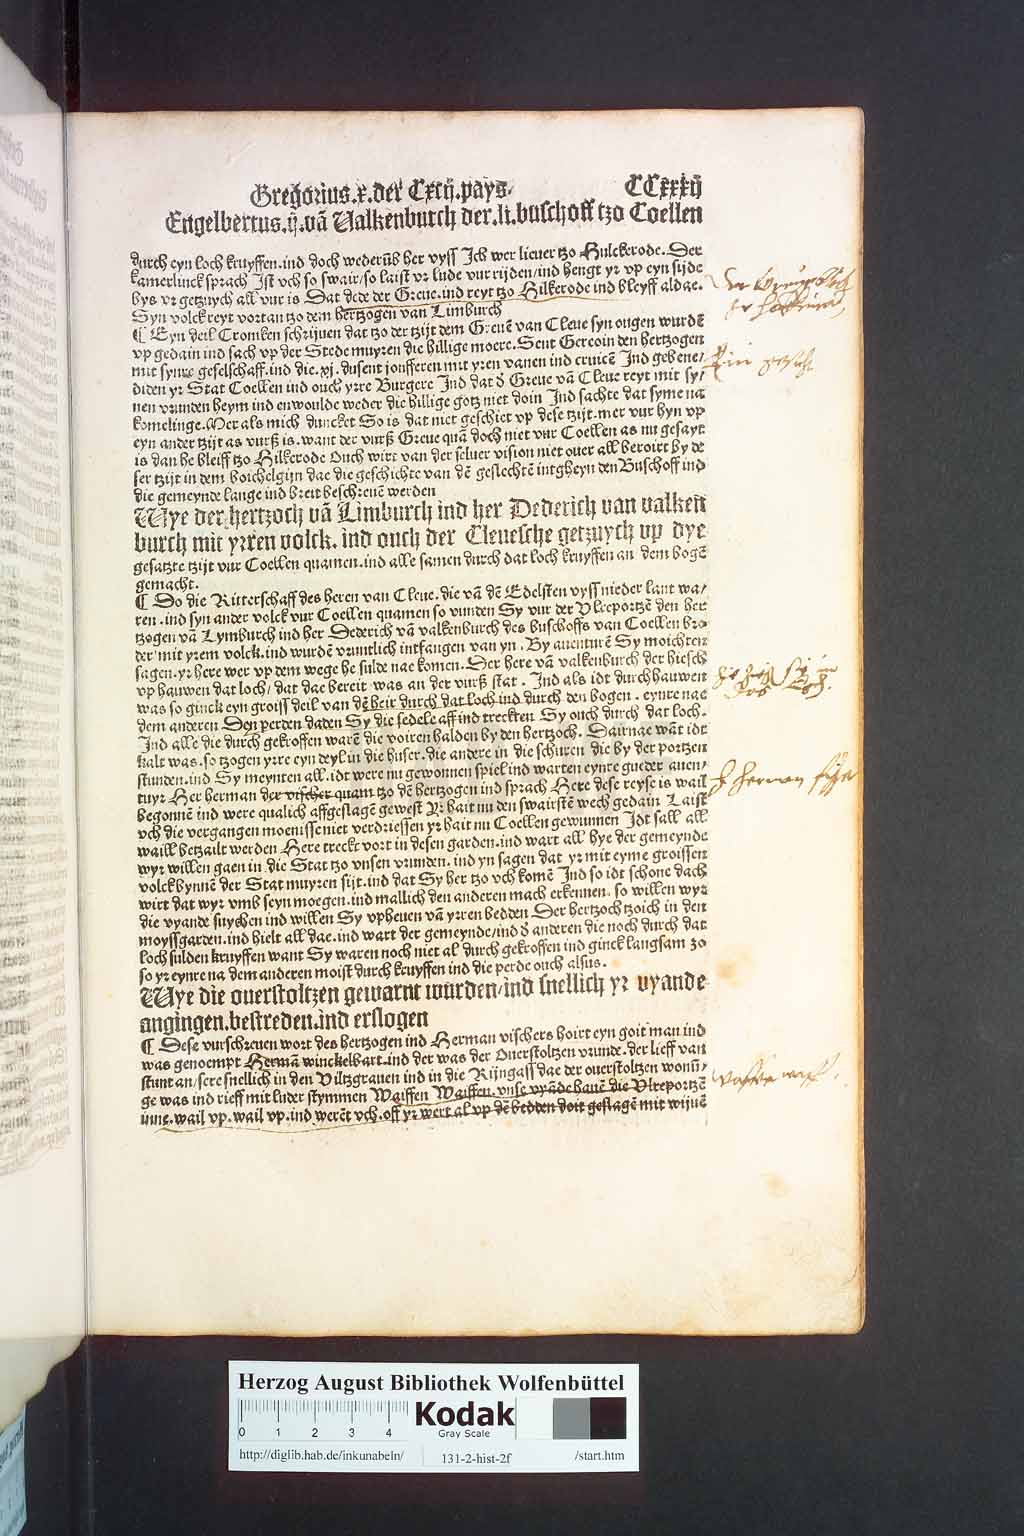 Gregorius.x.der Cxcij.pays. CCxxxij
Engelbertus.ij.vā Ualkenburch der.li.buschoff tzo Coellen
durch eyn loch kruyffen.ind doch wederūb her vyss Ich wer lieuer tzo Hulckerode.Der
kamerlinck sprach Ist vch so swair/so laist vr lude vur rijden/ind hengt yr vp eyn sijde
bys vr getzuych all vur is Dat dede der Greue.ind reyt tzo Hilkerode ind bleyff aldae.
Syn volck reyt vortan tzo dem hertzogen van Limburch
¶ Eyn deil Croniken schrijuen dat tzo der tzijt dem Greuē van Cleue syn ougen wurdē
vp gedain ind sach vp der Stede muyren die hillige moere.Sent Gereoin den hertzogen
mit syme geselschaff.ind die.xj.dusent jonfferen mit yren vanen ind cruicē Ind gebene/
diden yr Stat Coellen ind ouch yrre Burgere Ind dat d̕ Greue vā Cleue reyt mit sy/
nen vrunden heym ind enwoulde weder die hillige gotz niet doin Ind sachte dat syme na
komelinge.Mer als mich duncket So is dat niet geschiet vp dese tzijt.mer vur hyn vp
eyn ander tzijt as vurß is.want der vurß Greue quā doch niet vur Coellen as nu gesayt
is dan he bleiff tzo Hilkerode Ouch wirt van der seluer vision niet ouer all beroirt by de
ser tzijt in dem boichelgijn dae die geschichte van dē geslechtē intgheyn den Buschoff ind
die gemeynde lange ind breit beschreuē werden
Wye der hertzoch vā Limburch ind her Dederich van valken
burch mit yrren volck. ind ouch der Cleuesche getzuych vp dye
gesatzte tzijt vur Coellen quamen.ind alle samen durch dat loch kruyffen an dem bogē
gemacht.
¶ Do die Ritterschaff des heren van Cleue.die vā dē Edelsten vyss nieder lant wa/
ren.ind syn ander volck vur Coellen quamen so vunden Sy vur der Vlreportzē den her
tzogen vā Lymburch ind her Dederich vā valkenburch des buschoffs van Coellen bro
der mit yrem volck.ind wurdē vruntlich intfangen van yn. By auenturē Sy moichten
sagen.yr here wer vp dem wege he sulde nae komen.Der here vā valkenburch der hiesch
vp hauwen dat loch/dat dae bereit was an der vurß stat. Ind als idt durchhauwen
was so ginck eyn groiss deil van dē heir durch dat loch ind durch den bogen. eynre nae
dem anderen Den perden daden Sy die sedele aff ind treckten Sy ouch durch dat loch.
Ind alle die durch gekroffen warē die voiren halden by den hertzoch. Dairnae wāt idt
kalt was.so tzogen yrre eyn deyl in die huser.die andere in die schuren die by der portzen
stunden.ind Sy meynten all.idt were nu gewonnen spiel ind warten eynre gueder auen/
tuyr Her herman der vischer quam tzo dē hertzogen ind sprach Here dese reyse is wail
begonnē ind were qualich affgeslagē gewest Yr hait nu den swairstē wech gedain Laist
vch die vergangen moenisse niet verdriessen yr hait nu Coellen gewunnen Idt sall all
waill betzailt werden Here treckt vort in desen garden.ind wart all hye der gemeynde
wyr willen gaen in die Stat tzo vnsen vrunden.ind yn sagen dat yr mit eyme groissen
volck bynnē der Stat muyren sijt.ind dat Sy her tzo vch komē Ind so idt schone dach
wirt dat wyr vmb seyn moegen.ind mallich den anderen mach erkennen. so willen wyr
die vyande suychen ind willen Sy vpheuen vā yrren bedden Der hertzoch tzoich in den
moyssgarden.ind hielt all dae.ind wart der gemeynde/ind d̕ anderen die noch durch dat
loch sulden kruyffen want Sy waren noch niet al durch gekroffen ind ginck langsam zo
so yr eynre na dem anderen moist durch kruyffen ind die perde ouch alsus.
Wye die ouerstoltzen gewarnt wurden/ind snellich yr vyande
angingen.bestreden.ind erslogen
¶ Dese vurschreuen wort des hertzogen ind Herman vischers hoirt eyn goit man ind
was genoempt Hermā winckelbart.ind der was der Ouerstoltzen vrunde.der lieff van
stunt an/sere snellich in den Viltzgrauen ind in die Rijngass dae der ouerstoltzen wonū/
ge was ind rieff mit luder stymmen Waiffen Waiffen.vnse vyāde hauē die Vlreportzē
inne.wail vp.wail vp.ind werēt vch.off yr wert al vp dē bedden doit geslagē mit wijuē
Herzog August Bibliothek Wolfenbüttel
0 1 2 3 4
Kodak
Gray Scale
http://diglib.hab.de/inkunabeln/ 131-2-hist-2f /start.htm